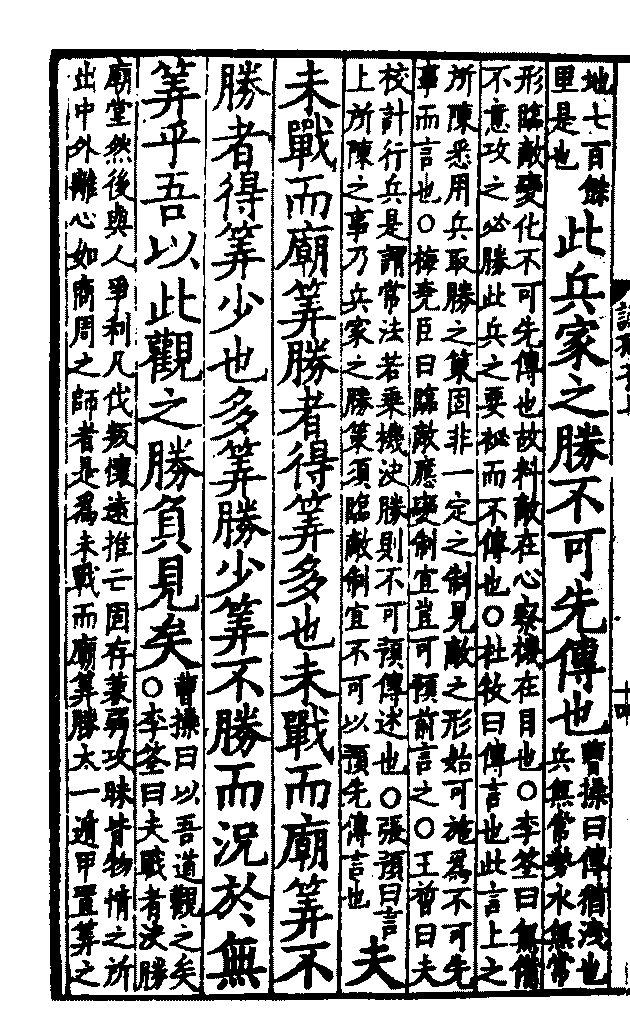 地七百餘里是也此兵家之勝不可先傳也曹操曰傳猶洩也兵無常勢水無常
形臨敵變化不可先傳也故料敵在心察機在目也○李筌曰無備
不意攻之必勝此兵之要祕而不傳也○杜牧曰傳言也此言上之
所陳悉用兵取勝之策固非一定之制見敵之形始可施爲不可先
事而言也○梅堯臣曰臨敵應變制宜豈可預前言之○王晳曰夫
校計行兵是謂常法若乘機決勝則不可預傳述也○張預曰言
上所陳之事乃兵家之勝策須臨敵制宜不可以預先傳言也夫
未戰而廟筭勝者得筭多也未戰而廟筭不
勝者得筭少也多筭勝少筭不勝而況於無
筭乎吾以此觀之勝負見矣曹操曰以吾道觀之矣○李筌曰夫戰者決勝
廟堂然後與人爭利凡伐叛懷遠推亡固存兼弱攻昧皆物情之所
出中外離心如商周之師者是爲未戰而廟筭勝太一遁甲置筭之